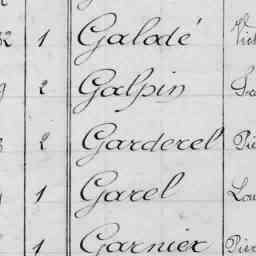 32 1 Galadé
2 Galpin
2 Garderel Pie
1 Garel Lau
1 Garnier Pier